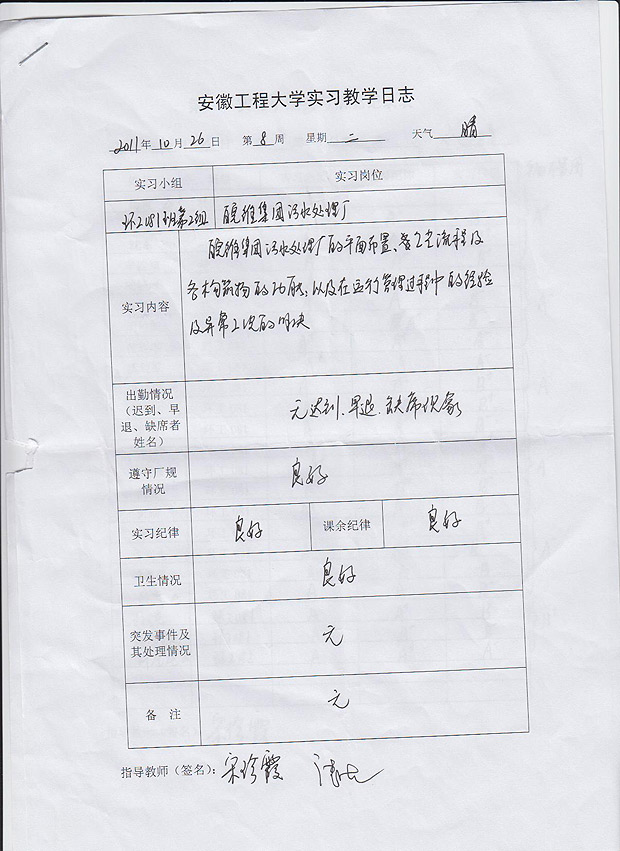 安徽工程大学实习教学日志
2011年10月26日 第8周 星期二 天气 晴
实习小组 实习岗位
环2081班第2组 皖维集团污水处理厂
实习内容
皖维集团污水处理厂的平面布置、各工艺流程及
各构筑物的功能,以及在运行管理过程中的经验
及异常工况的解决
出勤情况
(迟到、早
退、缺席者
姓名)
无迟到、早退、缺席现象
遵守厂规
情况
良好
实习纪律 良好 课余纪律 良好
卫生情况 良好
突发事件及
其处理情况
无
备 注 无
指导教师(签名): 宋珍霞